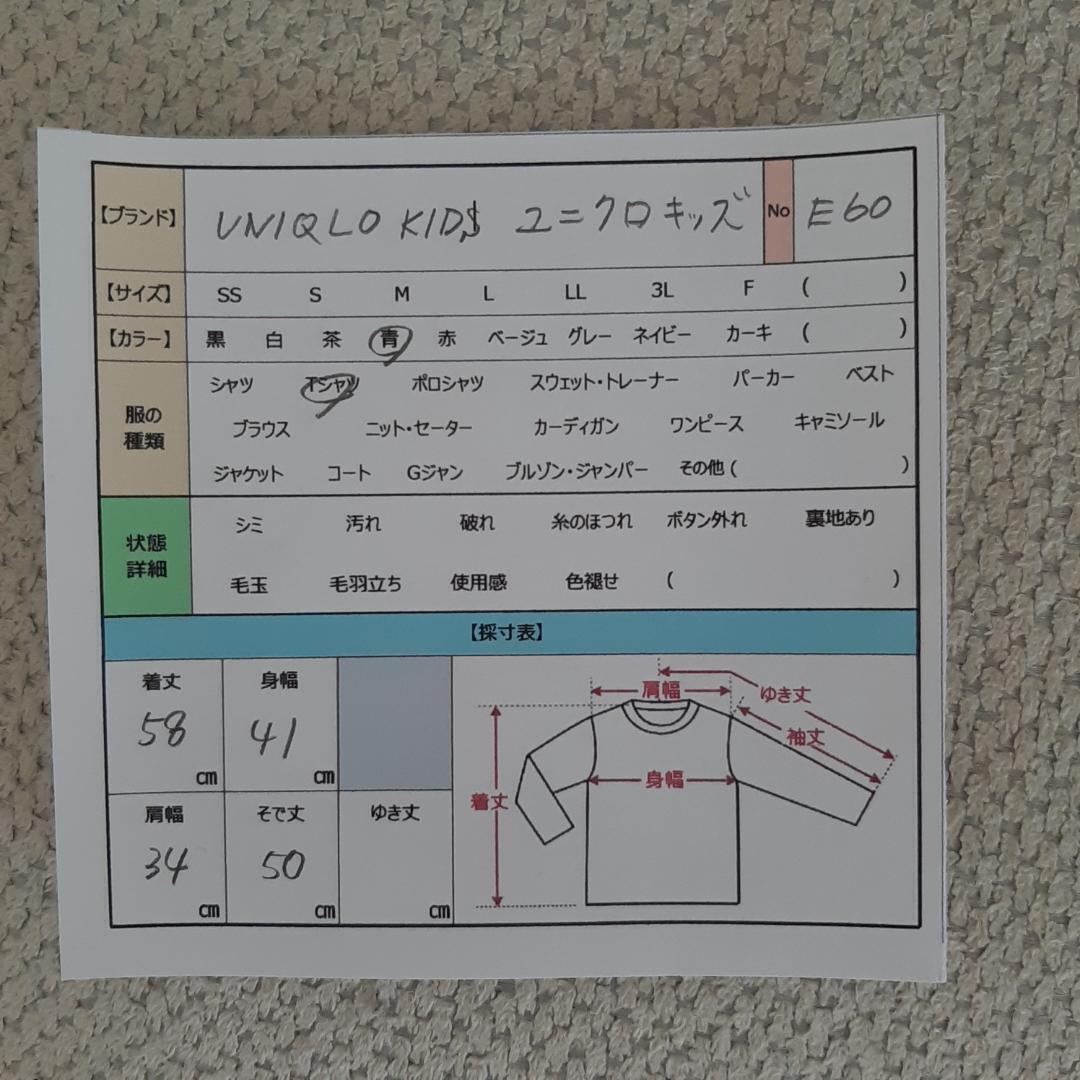 【ブランド】 UNIQLO KIDS ユニクロ キッズ No E60
【サイズ】 SS S M L LL 3L F ( )
【カラー】 黒 白 茶 青 赤 ベージュ グレー ネイビー カーキ ( )
服の種類
シャツ Tシャツ ポロシャツ スウェット・トレーナー パーカー ベスト
ブラウス ニット・セーター カーディガン ワンピース キャミソール
ジャケット コート Gジャン ブルゾン・ジャンパー その他 ( )
状態詳細
シミ 汚れ 破れ 糸のほつれ ボタン外れ 裏地あり
毛玉 毛羽立ち 使用感 色褪せ ( )
【採寸表】
着丈 身幅
58 cm 41 cm
肩幅 そで丈 ゆき丈
34 cm 50 cm cm
肩幅 ゆき丈
袖丈
身幅
着丈